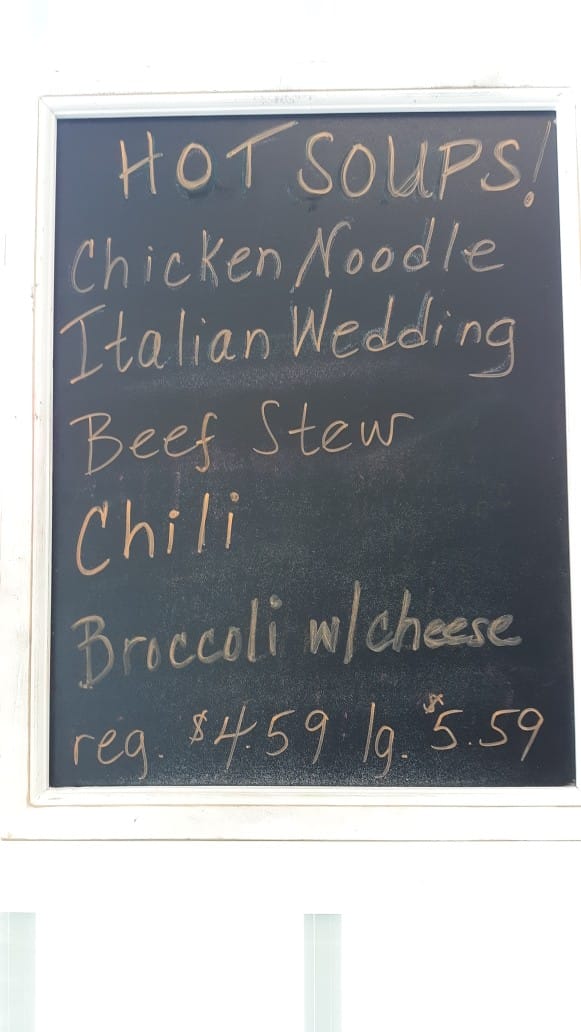 HOT SOUPS!
Chicken Noodle
Italian Wedding
Beef Stew
Chili
Broccoli w/cheese
reg. $4.59 lg. $5.59